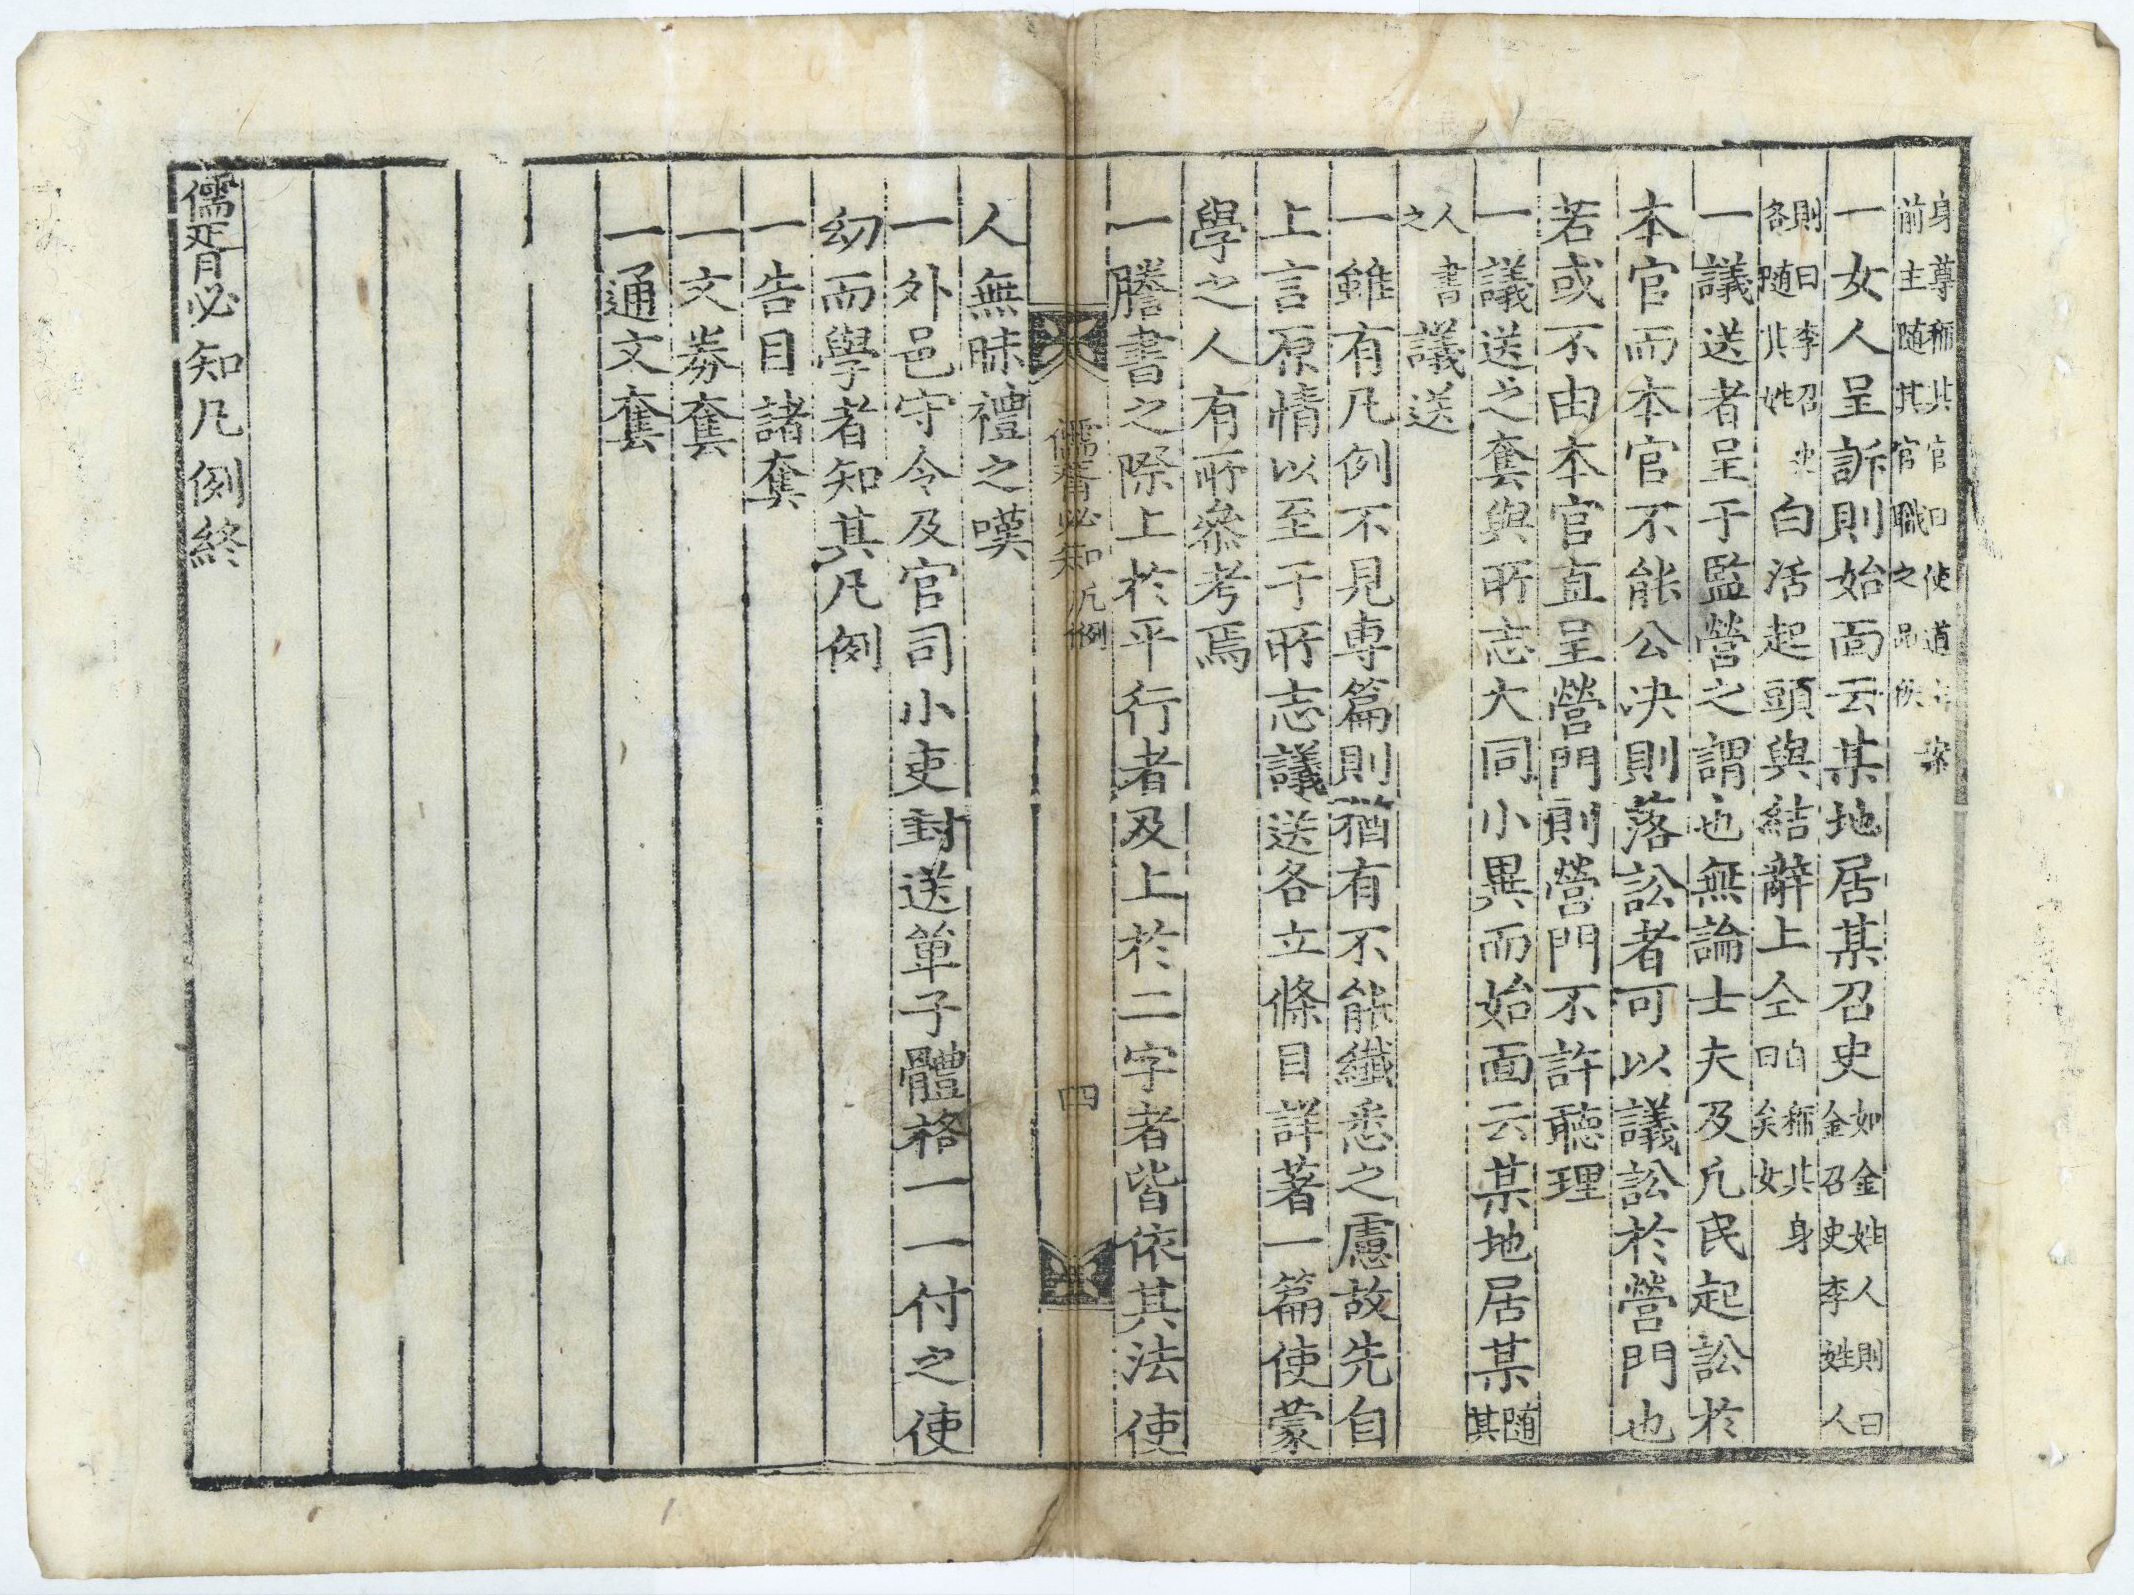 身尊稱其官曰使道
前主随其官職之品
一女人呈訴則始面云某地居某召史如金姓人則曰金召史李姓人
則曰李召史各随其姓白活起頭與結辭上仝白稱其身曰矣女
一議送者呈于監營之謂也無論士夫及凡民起訟於
本官而本官不能公决則落訟者可以議訟於營門也
若或不由本官直呈營門則營門不許聽理
一議送之套與所志大同小異而始面云某地居某随其
人之書議送
一雖有凡例不見專篇則猶有不能纖悉之慮故先自
上言原情以至于所志議送各立條目詳著一篇使蒙
學之人有所叅考焉
一謄書之際上於平行者及上於二字者皆依其法使
儒胥必知凡例 四
人無昧禮之嘆
一外邑守令及官司小吏封送單子體格一一付之使
幼而學者知其凡例
一告目諸套
一文劵套
一通文套
儒胥必知凡例終